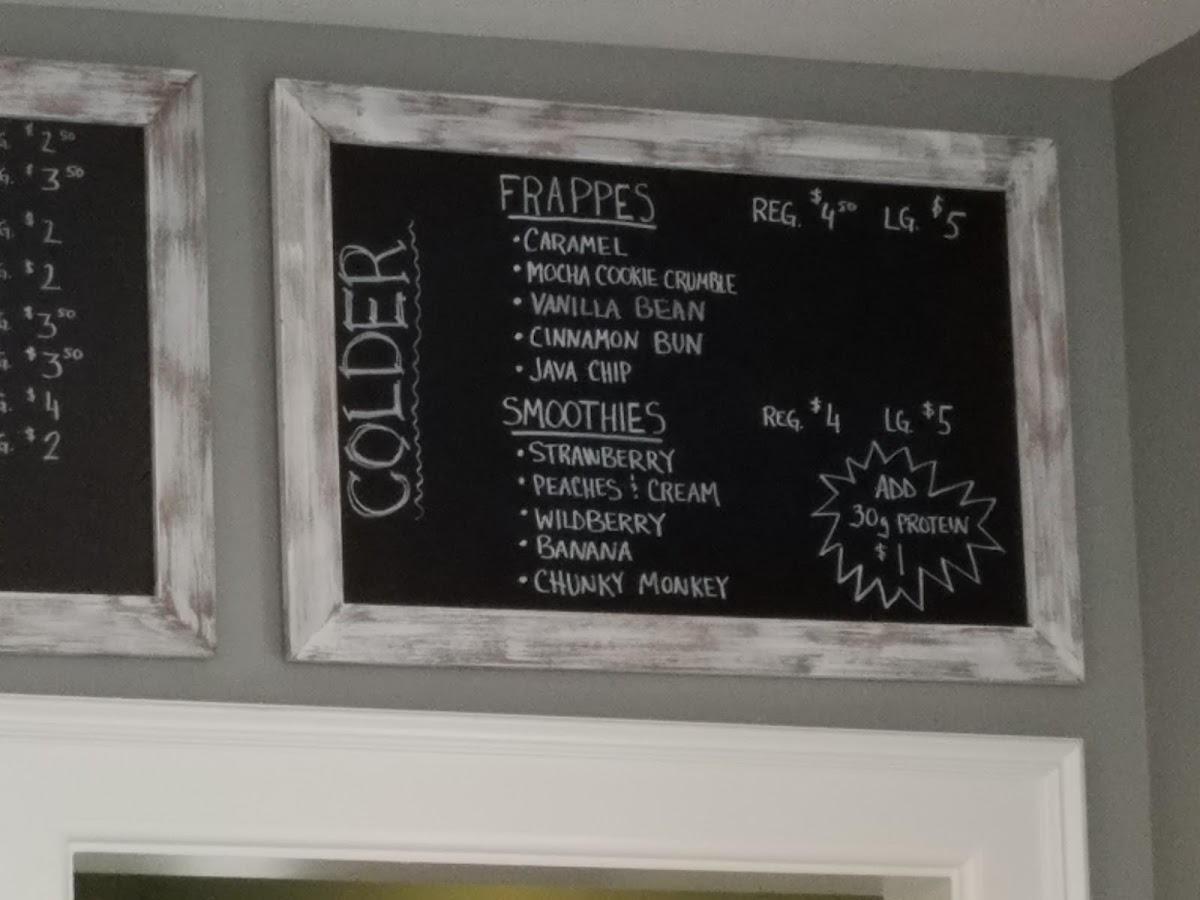 $2.50
$3.50
$2
$2
$3.50
$3.50
$4
$2
COLDER
FRAPPES REG. $4.50 LG. $5
• CARAMEL
• MOCHA COOKIE CRUMBLE
• VANILLA BEAN
• CINNAMON BUN
• JAVA CHIP
SMOOTHIES REG. $4 LG. $5
• STRAWBERRY
• PEACHES & CREAM
• WILDBERRY
• BANANA
• CHUNKY MONKEY
ADD
30g PROTEIN
$1